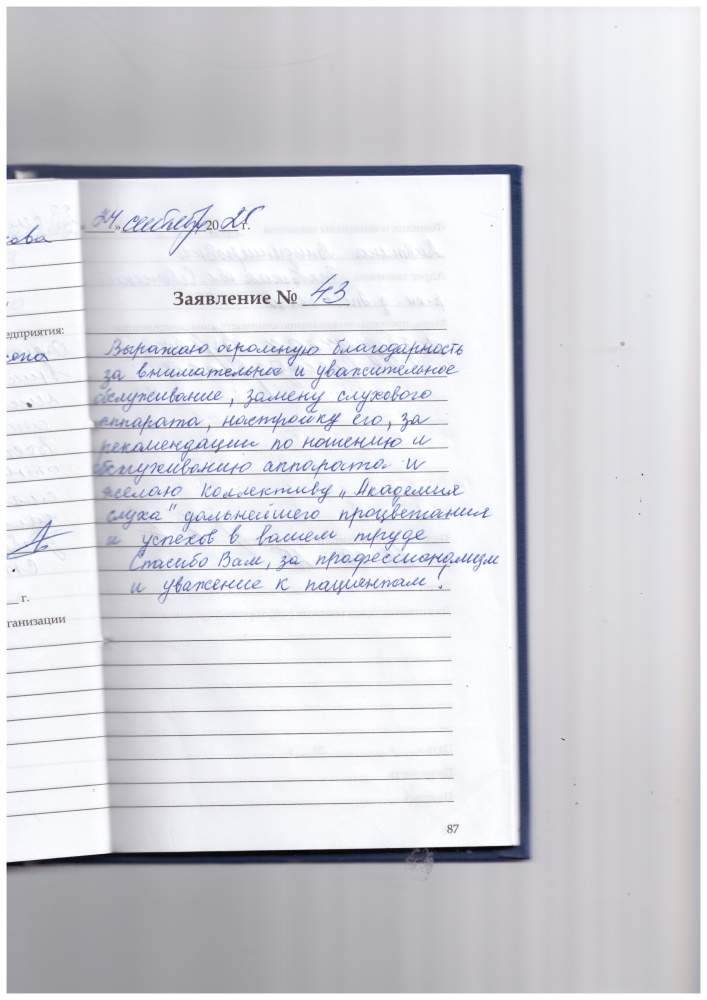 ова
едприятия:
г.
ганизации
24 сентябр 20 г.
Заявление № 43
Выражаю огромную благодарность
за внимательное и уважительное
обслуживание, замену слухового
аппарата, настройку его, за
рекомендации по ношению и
обслуживанию аппарата и
желаю коллективу „Академия
слуха" дальнейшего процветания
и успехов в вашем труде
Спасибо Вам, за профессионализм
и уважение к пациентам!
87